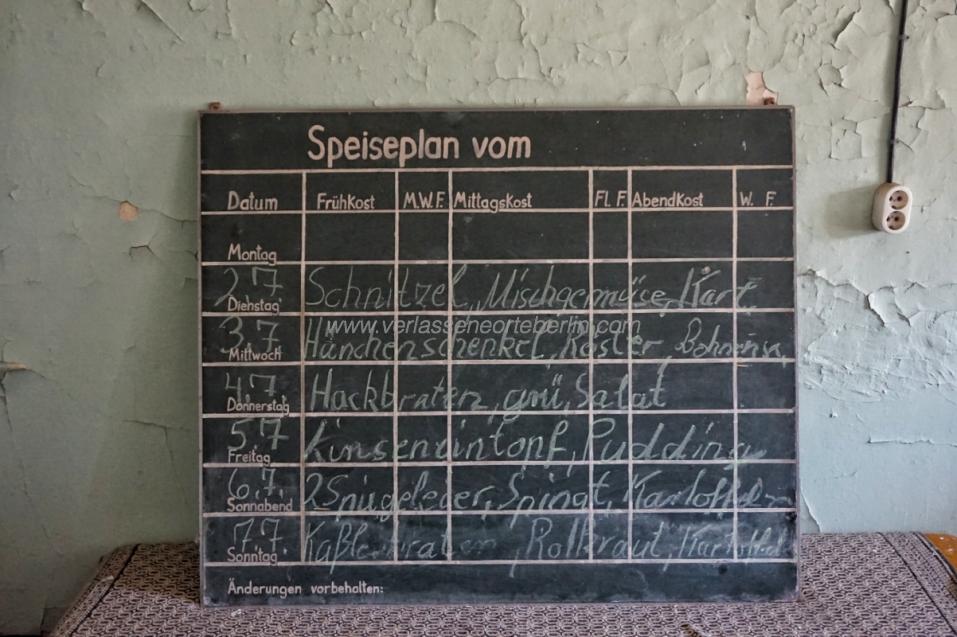 Speiseplan vom
Datum Frühkost M.W.F. Mittagskost Fl. F. Abendkost W. F.
Montag
2.7 Dienstag Schnitzel, Mischgemüse, Kart.
www.verlasseneorteberlin.com
3.7 Mittwoch Hänchenschenkel, Röster, Bohnensa,
4.7 Donnerstag Hackbraten, grü, Salat
5.7 Freitag Linseneintopf, Pudding
6.7. Sonnabend 2 Spinat, Kartoffeln
7.7. Sonntag Rotkraut, Kartoffel
Änderungen vorbehalten: